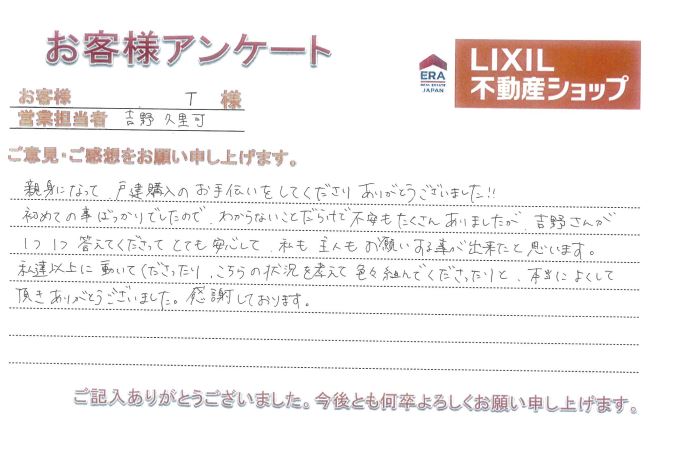 お客様アンケート
ERA
REAL ESTATE
JAPAN
LIXIL
不動産ショップ
お客様 T 様
営業担当者 吉野 久里可
ご意見・ご感想をお願い申し上げます。
親身になって、戸建購入のお手伝いをしてくださりありがとうございました!!
初めての事ばっかりでしたので、わからないことだらけで不安もたくさんありましたが、吉野さんが
1つ1つ答えてくださってとても安心して、私も主人もお願いする事が出来たと思います。
私達以上に動いてくださったり、こちらの状況を考えて色々組んでくださったりと、本当によくして
頂きありがとうございました。感謝しております。
ご記入ありがとうございました。今後とも何卒よろしくお願い申し上げます。